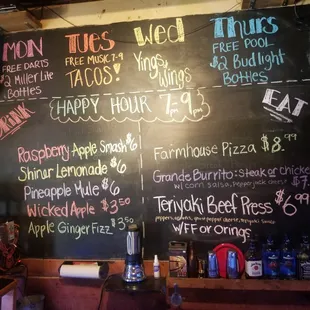 MON
FREE DARTS
$2 Miller Lite
Bottles
TUES
FREE MUSIC 7-9
TACOS!
Wed
Yings
Wings
Thurs
FREE POOL
$2 Bud light
Bottles
HAPPY HOUR 7-9
DRINK
Raspberry Apple Smash $6
Shinur Lemonade $6
Pineapple Mule $6
Wicked Apple $3.50
Apple Ginger Fizz $3.50
EAT
Farmhouse Pizza $8.99
Grande Burrito: Steak or chicken
w/ corn salsa, Pepper jack
Teriyaki Beef Press $6.99
w/FF or Orings